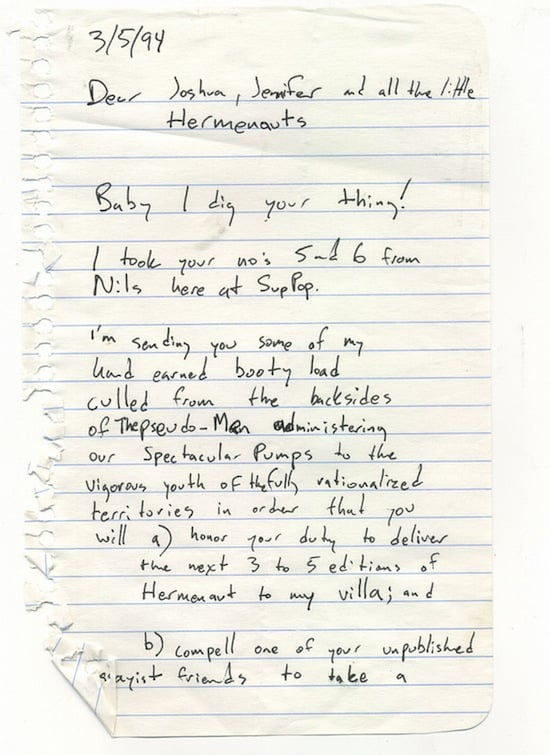 3/5/94
Dear Joshua, Jennifer and all the little
Hermenauts
Baby I dig your thing!
I took your no's 5 and 6 from
Nils here at SupPop.
I'm sending you some of my
hard earned booty load
culled from the backsides
of The pseudo-Men administering
our Spectacular Pumps to the
vigorous youth of the fully rationalized
territories in order that you
will a) honor your duty to deliver
the next 3 to 5 editions of
Hermenaut to my villa; and
b) compell one of your unpublished
friends to take a